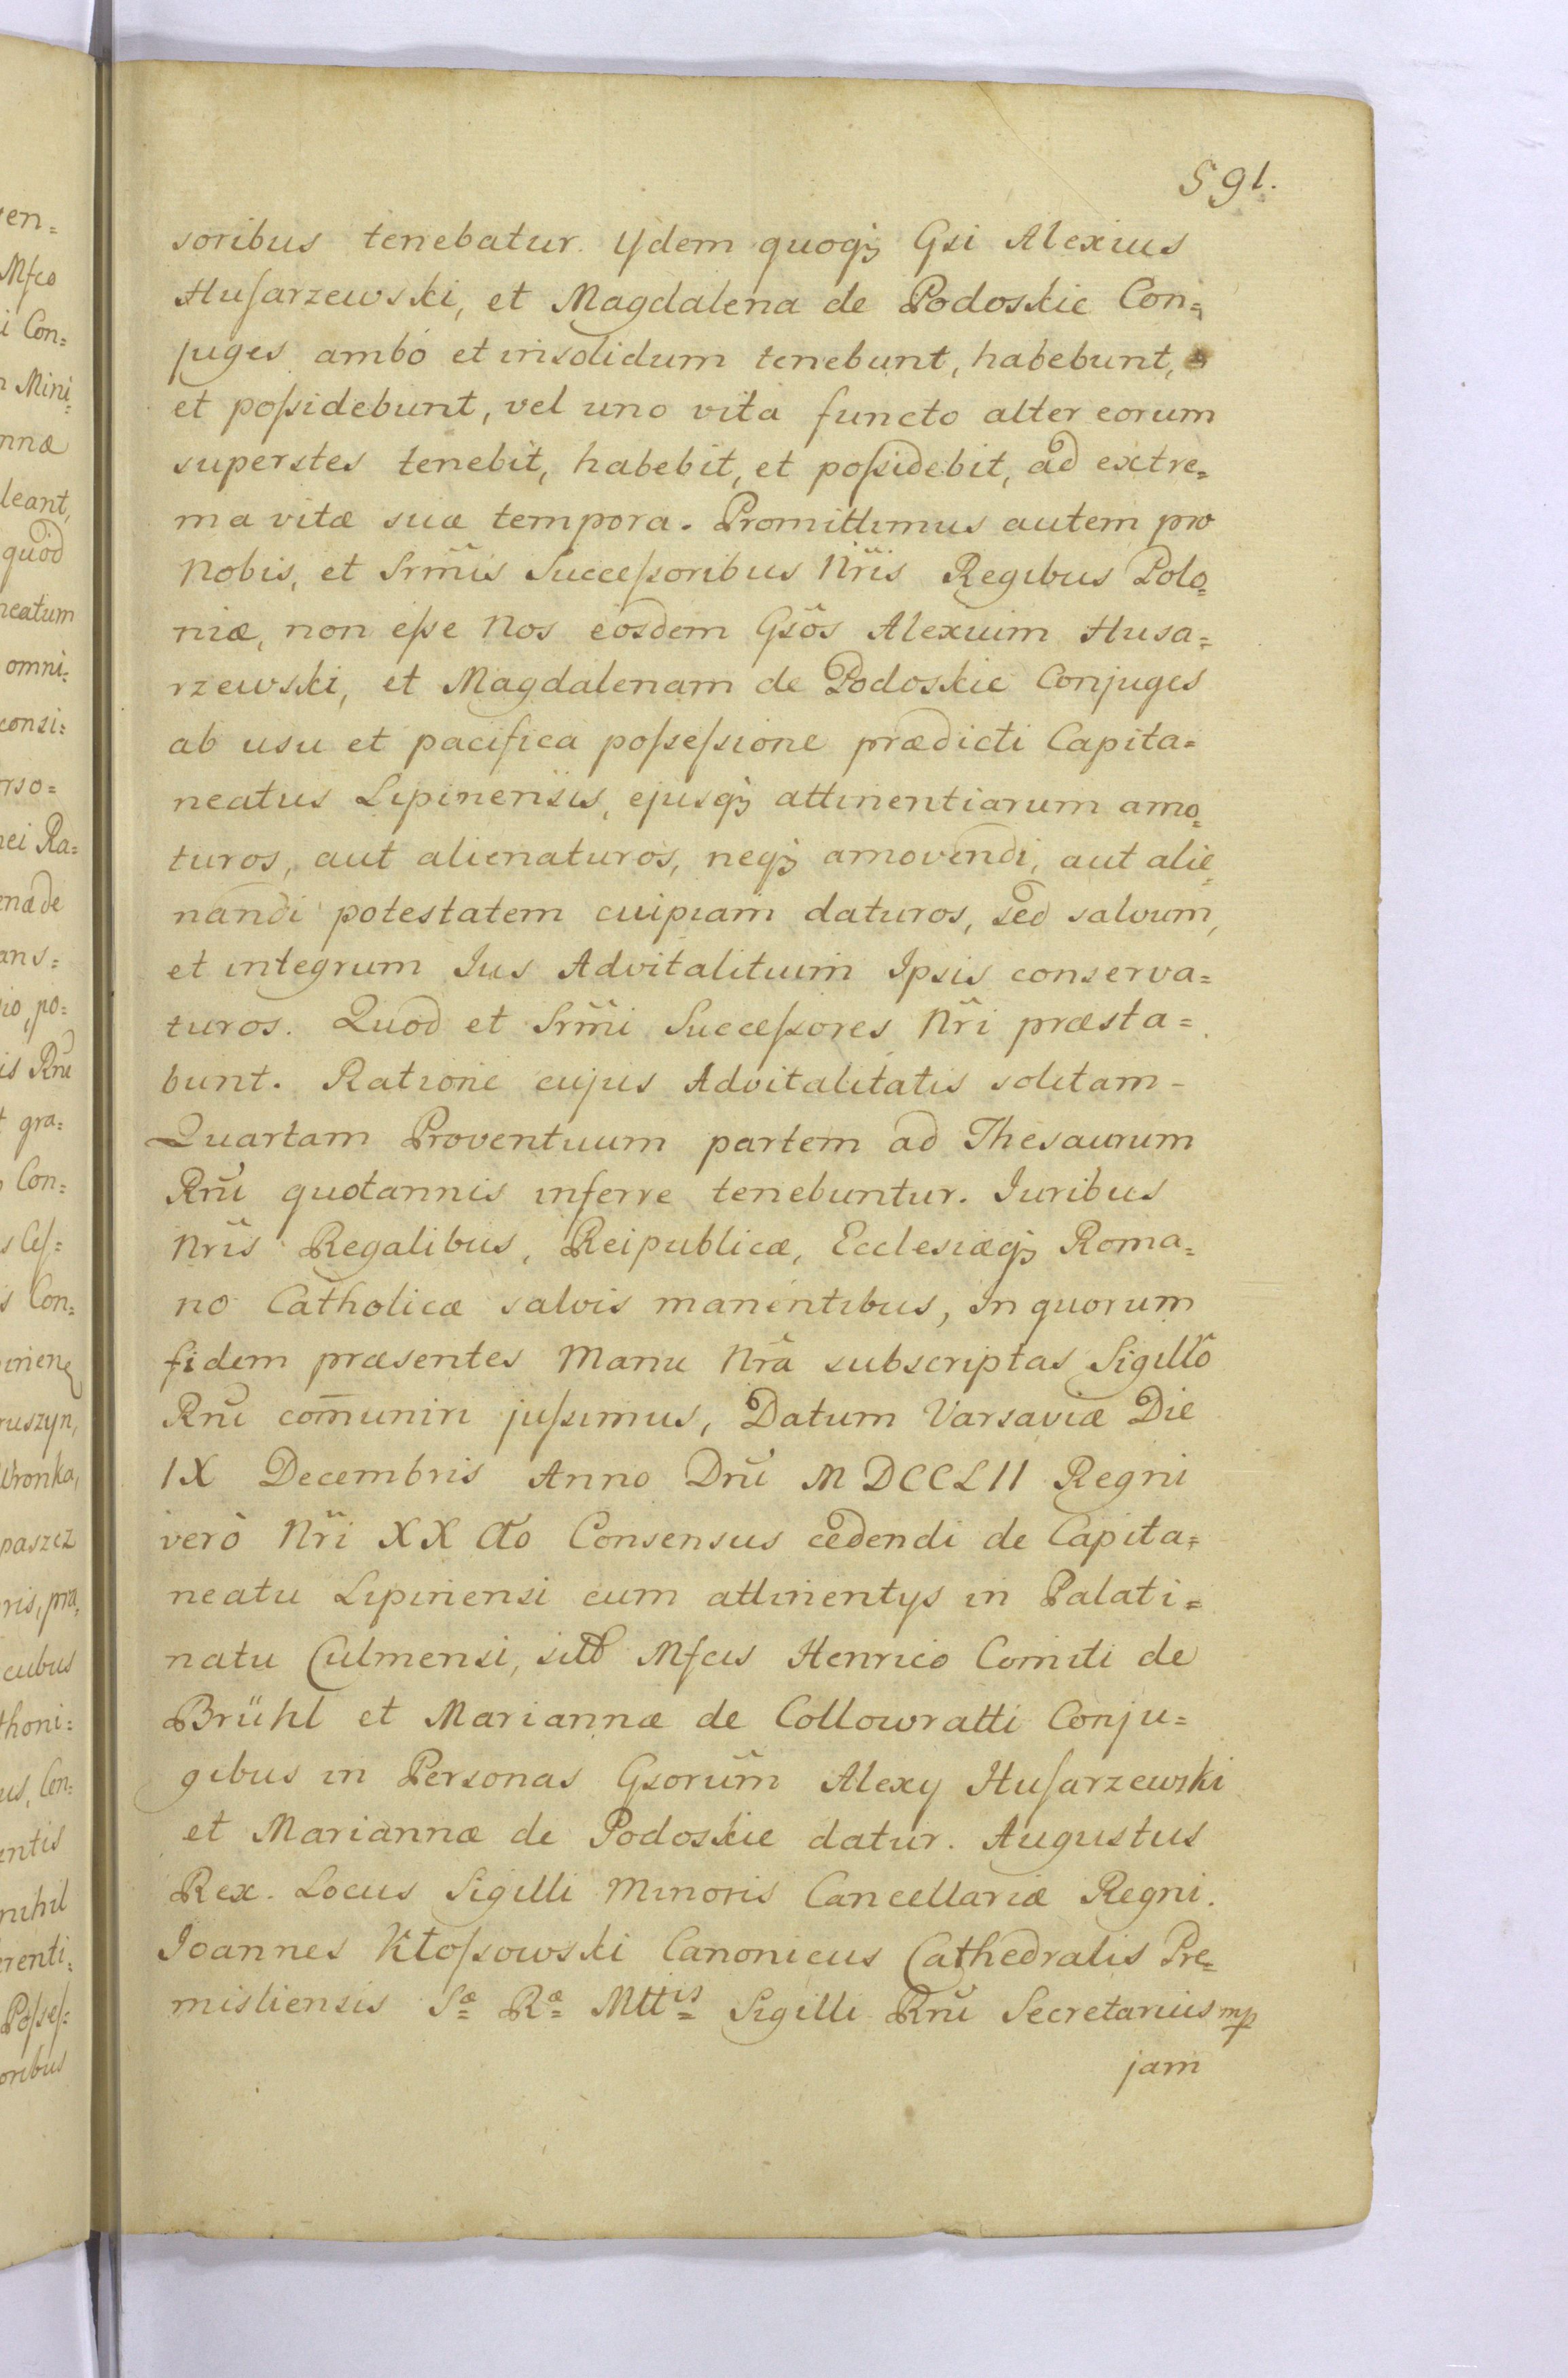 591.
soribus tenebatur. Ydem quoqꝫ Gsi Alexius
Huſarzewski, et Magdalena de Podoskie Con=
juges ambo et insolidum tenebunt, habebunt,
et poſsidebunt, vel uno vita functo alter eorum
superstes tenebit, habebit, et poſsidebit, ad extre=
ma vitæ suæ tempora. Promittimus autem pro
Nobis, et Srm̃is Succeſsoribus Nr̃is Regibus Polo=
niæ, non eſse Nos eosdem Gsõs Alexium Husa=
rzewski, et Magdalenam de Podoskie Conjuges
ab usu et pacifica poſseſsione prædicti Capita=
neatus Lipinensis, ejusqꝫ attinentiarum amo=
turos, aut alienaturos, neqꝫ amovendi, aut alie=
nandi potestatem cuipiam daturos, sed salvum,
et integrum Ius Advitalitium Ipsis conserva=
turos. Quod et Srm̃i Succeſsores Nr̃i præsta=
bunt. Ratione cujus Advitalitatis solitam-
Quartam Proventuum partem ad Thesaurum
Rñi quotannis inferre tenebuntur. Iuribus
Nr̃is Regalibus, Reipublicæ, Ecclesiæqꝫ Roma=
no Catholicæ salvis manentibus, In quorum
fidem præsentes Manu Nr̃a subscriptas Sigillo
Rñi com̄uniri juſsimus, Datum Varsaviæ Die
IX Decembris Anno Dñi MDCCLII Regni
verò Nr̃i XX Aõ Consensus cedendi de Capita=
neatu Lipinensi cum attinentys in Palati=
natu Culmensi, sitõ Mfcis Henrico Comiti de
Brühl et Mariannæ de Collowratti Conju=
gibus in Personas Gsorum̃ Alexy Huſarzewski
et Mariannæ de Podoskie datur. Augustus
Rex. Locus Sigilli Minoris Cancellariæ Regni.
Joannes Kłoſsowski Canonicus Cathedralis Pre=
misliensis Sæ Ræ Mttis Sigilli Rñi Secretarius mp
jam
ven=
Mfco
i Con=
Mini=
nnæ
leant,
quod
neatum
omni=
consi=
rso=
nei Ra=
enæ de
ans=
io, po=
is Rñi
t gra=
Con=
s Ceſ=
s Con=
inen
ruszyn,
Wronka,
paszcz
ris, præ
cubus
thoni=
us, Con=
entis
nihil
renti=
Poſseſ=
oribus